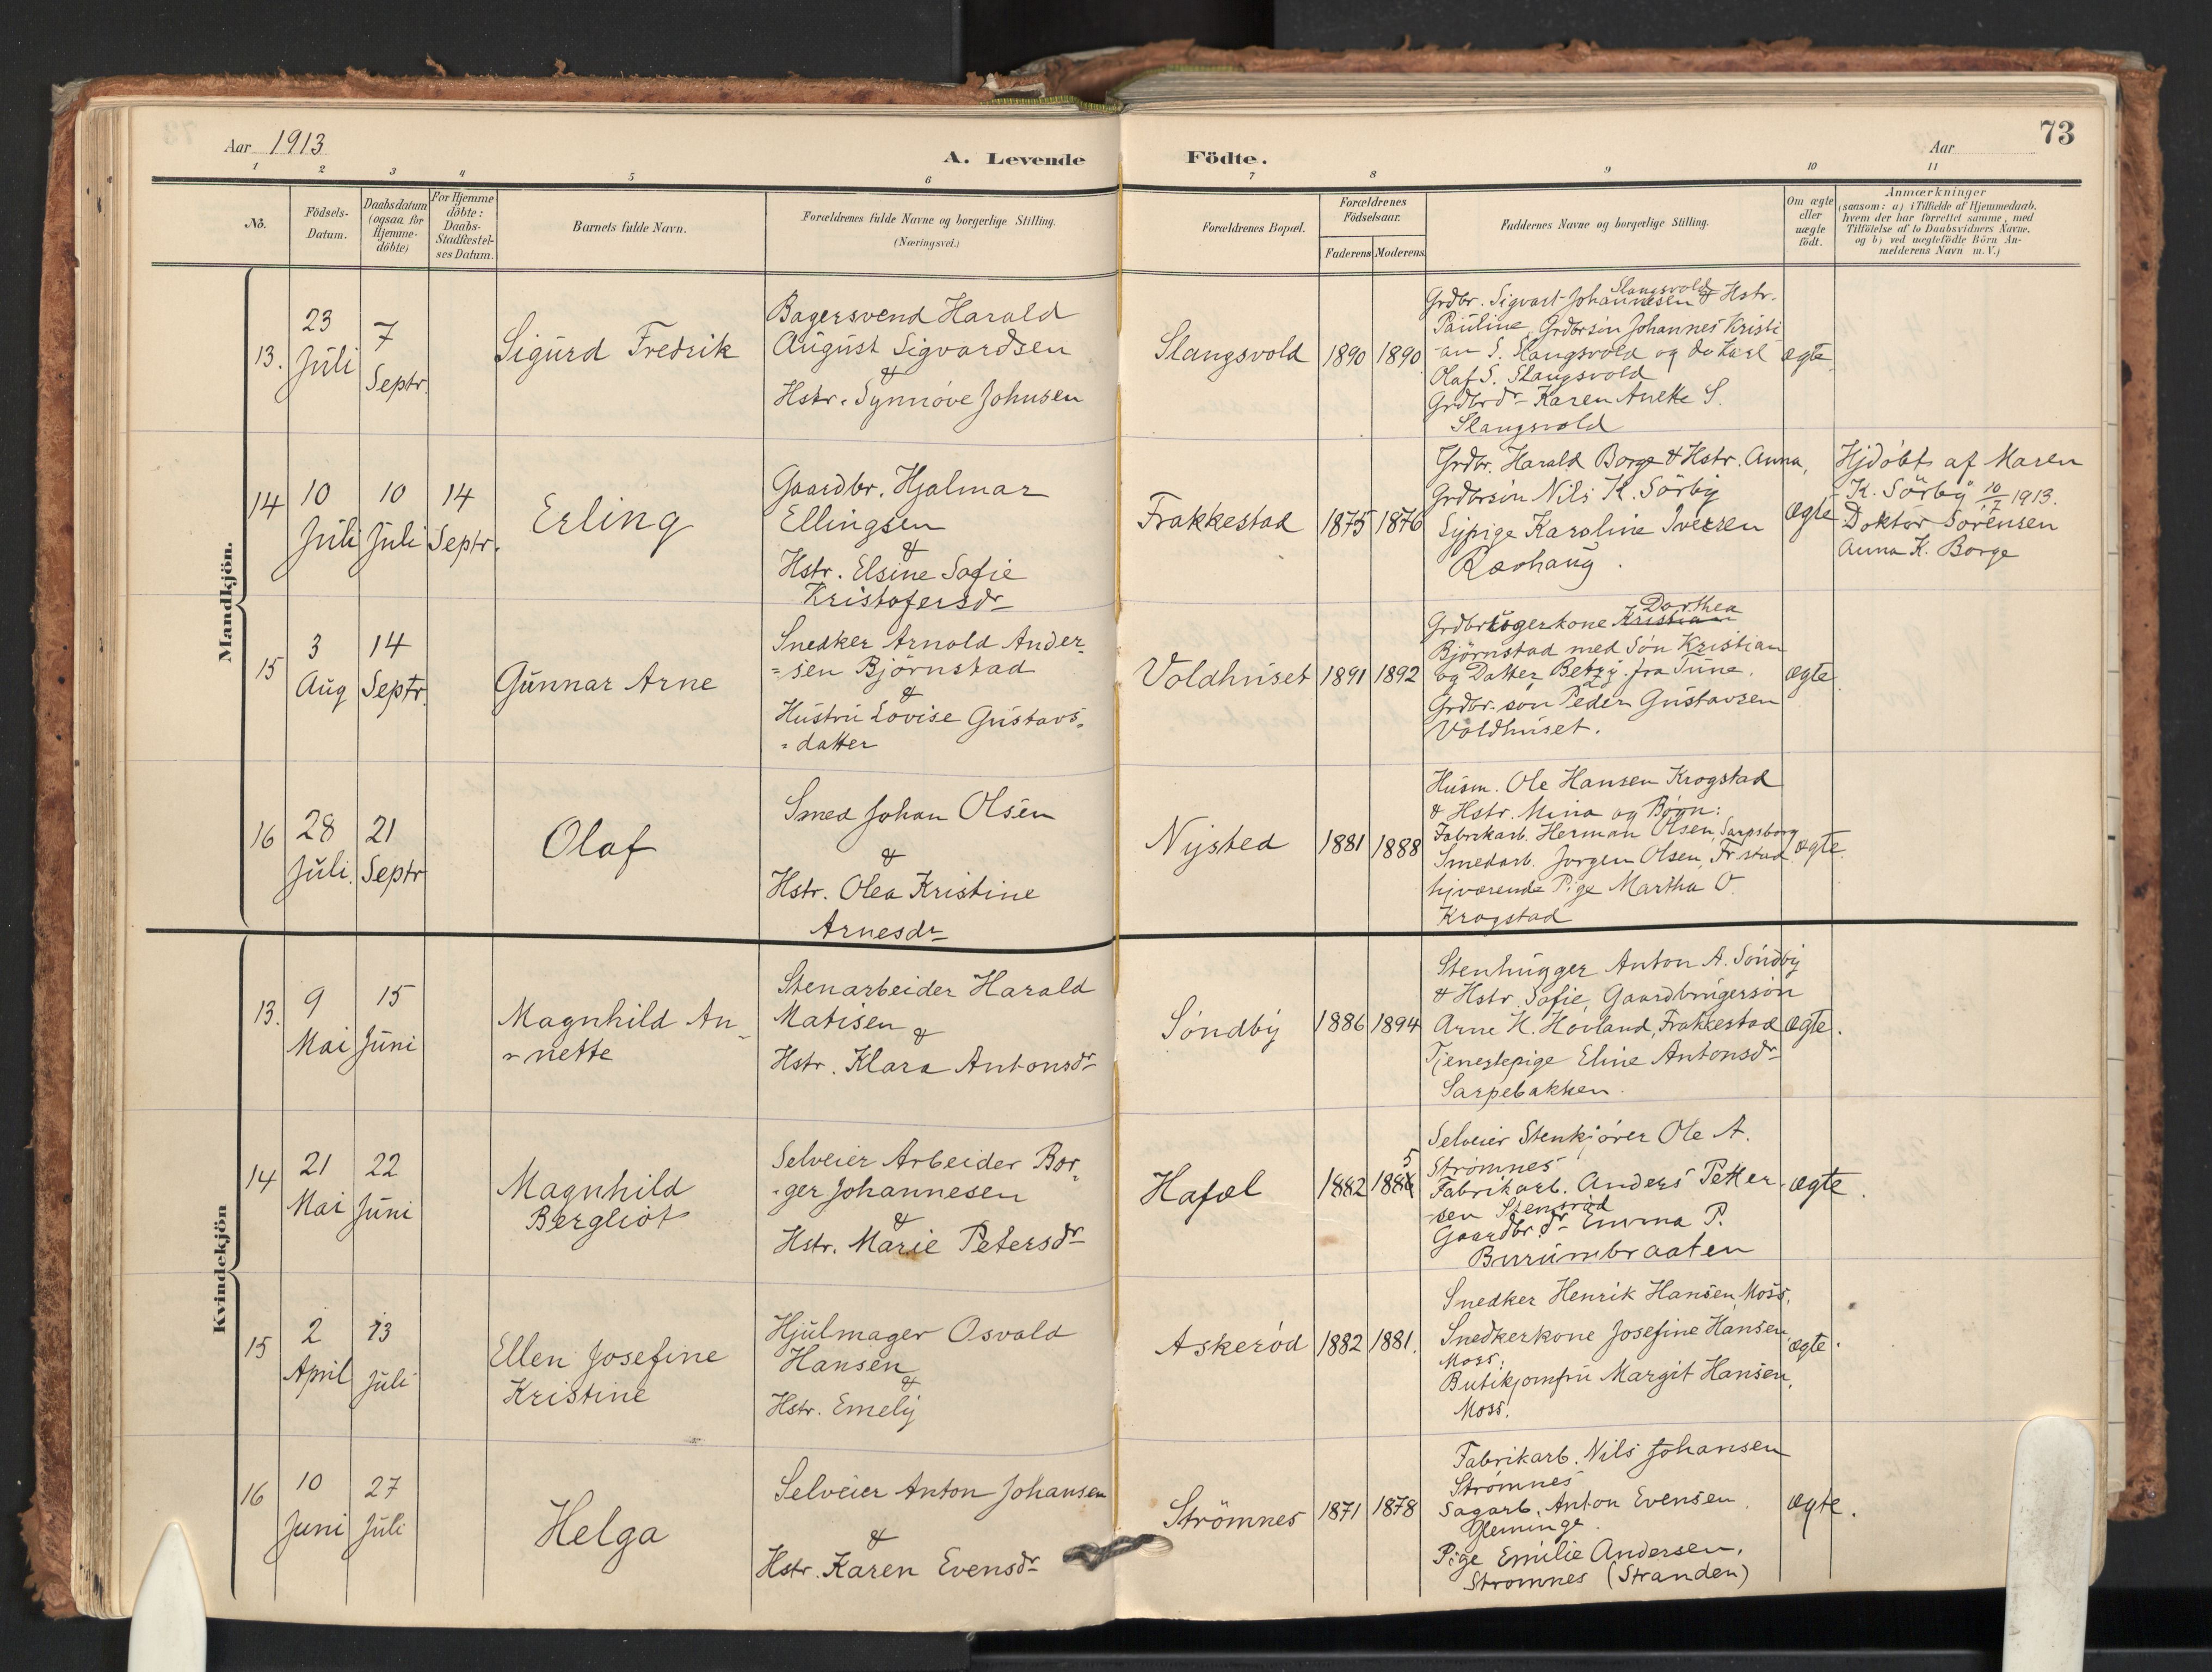 Aar 1913
A. Levende
Födte.
Aar
73
1 2 3 4 5 6 7 8 9 10 11
No.
Födsels-
Datum.
Daabsdatum
(ogsaa for
Hjemme-
döbte)
For Hjemme
döbte:
Daabs-
Stadfæstel-
ses Datum.
Barnets fulde Navn.
Forældrenes fulde Navne og borgerlige Stilling.
(Næringsvei.)
Forældrenes Bopæl.
Forældrenes
Födselsaar.
Faderens Moderens
Faddernes Navne og borgerlige Stilling.
Om ægte
eller
uægte
födt.
Anmærkninger
(saasom: a) i Tilfælde af Hjemmedaab,
hvem der har forrettet samme, med
Tilföielse af to Daabsvidners Navne,
og b) ved uægtefödte Börn An-
melderens Navn m. V.)
Mandkjön.
13.
23
Juli
7
Septr.
Sigurd Fredrik
Bagersvend Harald
August Sigvardsen
&
Hstr. Synnöve Johnsen
Slangsvold
1890
1890
Slangsvold
Grdbr. Sigvart Johannesen & Hstr.
Pauline, Grdbrsön Johannes Kristi
-an S. Slangsvold og do Karl
Olaf S. Slangsvold
Grdbrdr Karen Anette S.
Slangsvold
ægte
14
10
Juli
10
Juli
14
Septr.
Erling
Gaardbr. Hjalmar
Ellingsen
&
Hstr. Elsine Sofie
Kristofersdr
Frakkestad
1875
1876
Grdbr. Harald Borge & Hstr. Anna,
Grdbrsön Nils K. Sörby
Sypige Karoline Iversen
Ravhaug.
ægte
Hjdöbt af Maren
K. Sörby 10/7 1913.
Doktor Sörensen
Anna K. Borge
15
3
Aug
14
Septr.
Gunnar Arne
Snedker Arnold Ander-
=sen Björnstad
&
Hustru Lovise Gustavs=
=datter
Voldhuset
1891
1892
Dorthea
Grdbrugerkone Kristian
Björnstad med Sön Kristian
og Datter Betzy fra Tune.
Grdbr.sön Peder Gustavsen
Voldhuset.
ægte
16
28
Juli
21
Septr
Olaf
Smed Johan Olsen
&
Hstr. Olea Kristine
Arnesdr
Nysted
1881
1888
Husm. Ole Hansen Krogstad
& Hstr. Mina og Börn:
Fabrikarb. Herman Olsen, Sarpsborg
Smedarb. Jorgen Olsen, Fr.stad
hjværende Pige Martha O.
Krogstad
ægte.
Kvindekjön
13.
9
Mai
15
Juni
Magnhild An-
-nette
Stenarbeider Harald
Matisen &
Hstr. Klara Antonsdr
Söndby
1886
1894
Stenhugger Anton A. Söndby
& Hstr. Sofie, Gaardbrugersön
Arne H. Hovland, Frakkestad
Tjenestepige Eline Antonsdr
Sarpebakken.
ægte.
14
21
Mai
22
Juni
Magnhild
Bergliot
Selveier Arbeider Bor-
-ger Johannesen
&
Hstr. Marie Petersdr
Hafæl
1882
5
188
Selveier Stenkjörer Ole A.
Strömnes
Fabrikarb. Anders Petter-
-sen Stensröd
Gaardbr.dr Emma P.
Burumbraaten
ægte.
15
2
April
13
Juli
Ellen Josefine
Kristine
Hjulmager Osvald
Hansen
&
Hstr. Emely
Askeröd
1882
1881.
Snedker Henrik Hansen, Moss.
Snedkerkone Josefine Hansen,
Moss.
Butikjomfru Margit Hansen,
Moss.
ægte.
16
10
Juni
27
Juli
Helga
Selveier Anton Johansen
&
Hstr. Karen Evensdr
Strömnes
1871
1878
Fabrikarb. Nils Johansen
Strömnes
Sagarb. Anton Evensen,
Glemminge.
Pige Emilie Andersen,
Strömnes (Stranden)
ægte.